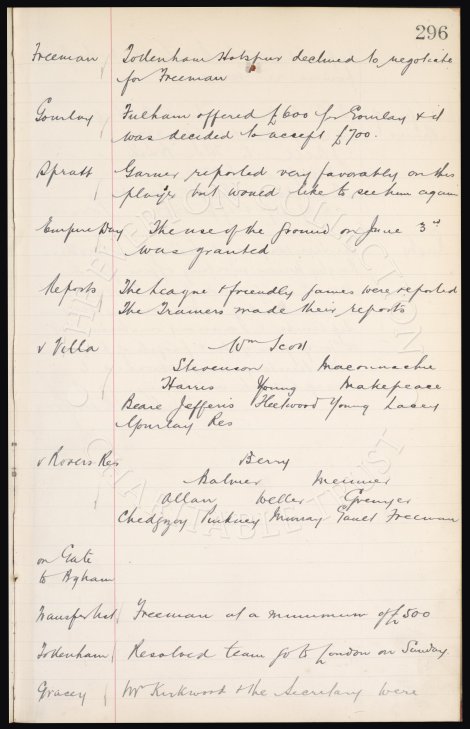 296
Freeman Tottenham Hotspur declined to negotiate
for Freeman
Gourlay Fulham offered £600 for Gourlay & it
was decided to accept £700.
Spratt Garner reported very favorably on this
player but would like to see him again
Empire Day The use of the ground on June 3rd
was granted
Reports The League & friendly games were reported
The Trainers made their reports
v Villa Wm Scott
Stevenson Maconnachie
Harris Young Makepeace
Beare Jefferis Fleetwood Young Lacey
Gourlay Res
v Rovers Res Berry
Balmer Meunier
Allan Weller Grenyer
Chedgzoy Pinkney Murray Gault Freeman
on Gate
to Bgham
Transfer list Freeman at a minimum of £500
Todenham Resolved team go to London on Sunday
Gracey Mr Kirkwood & the Secretary were
THE EVERTON COLLECTION
CHARITABLE TRUST